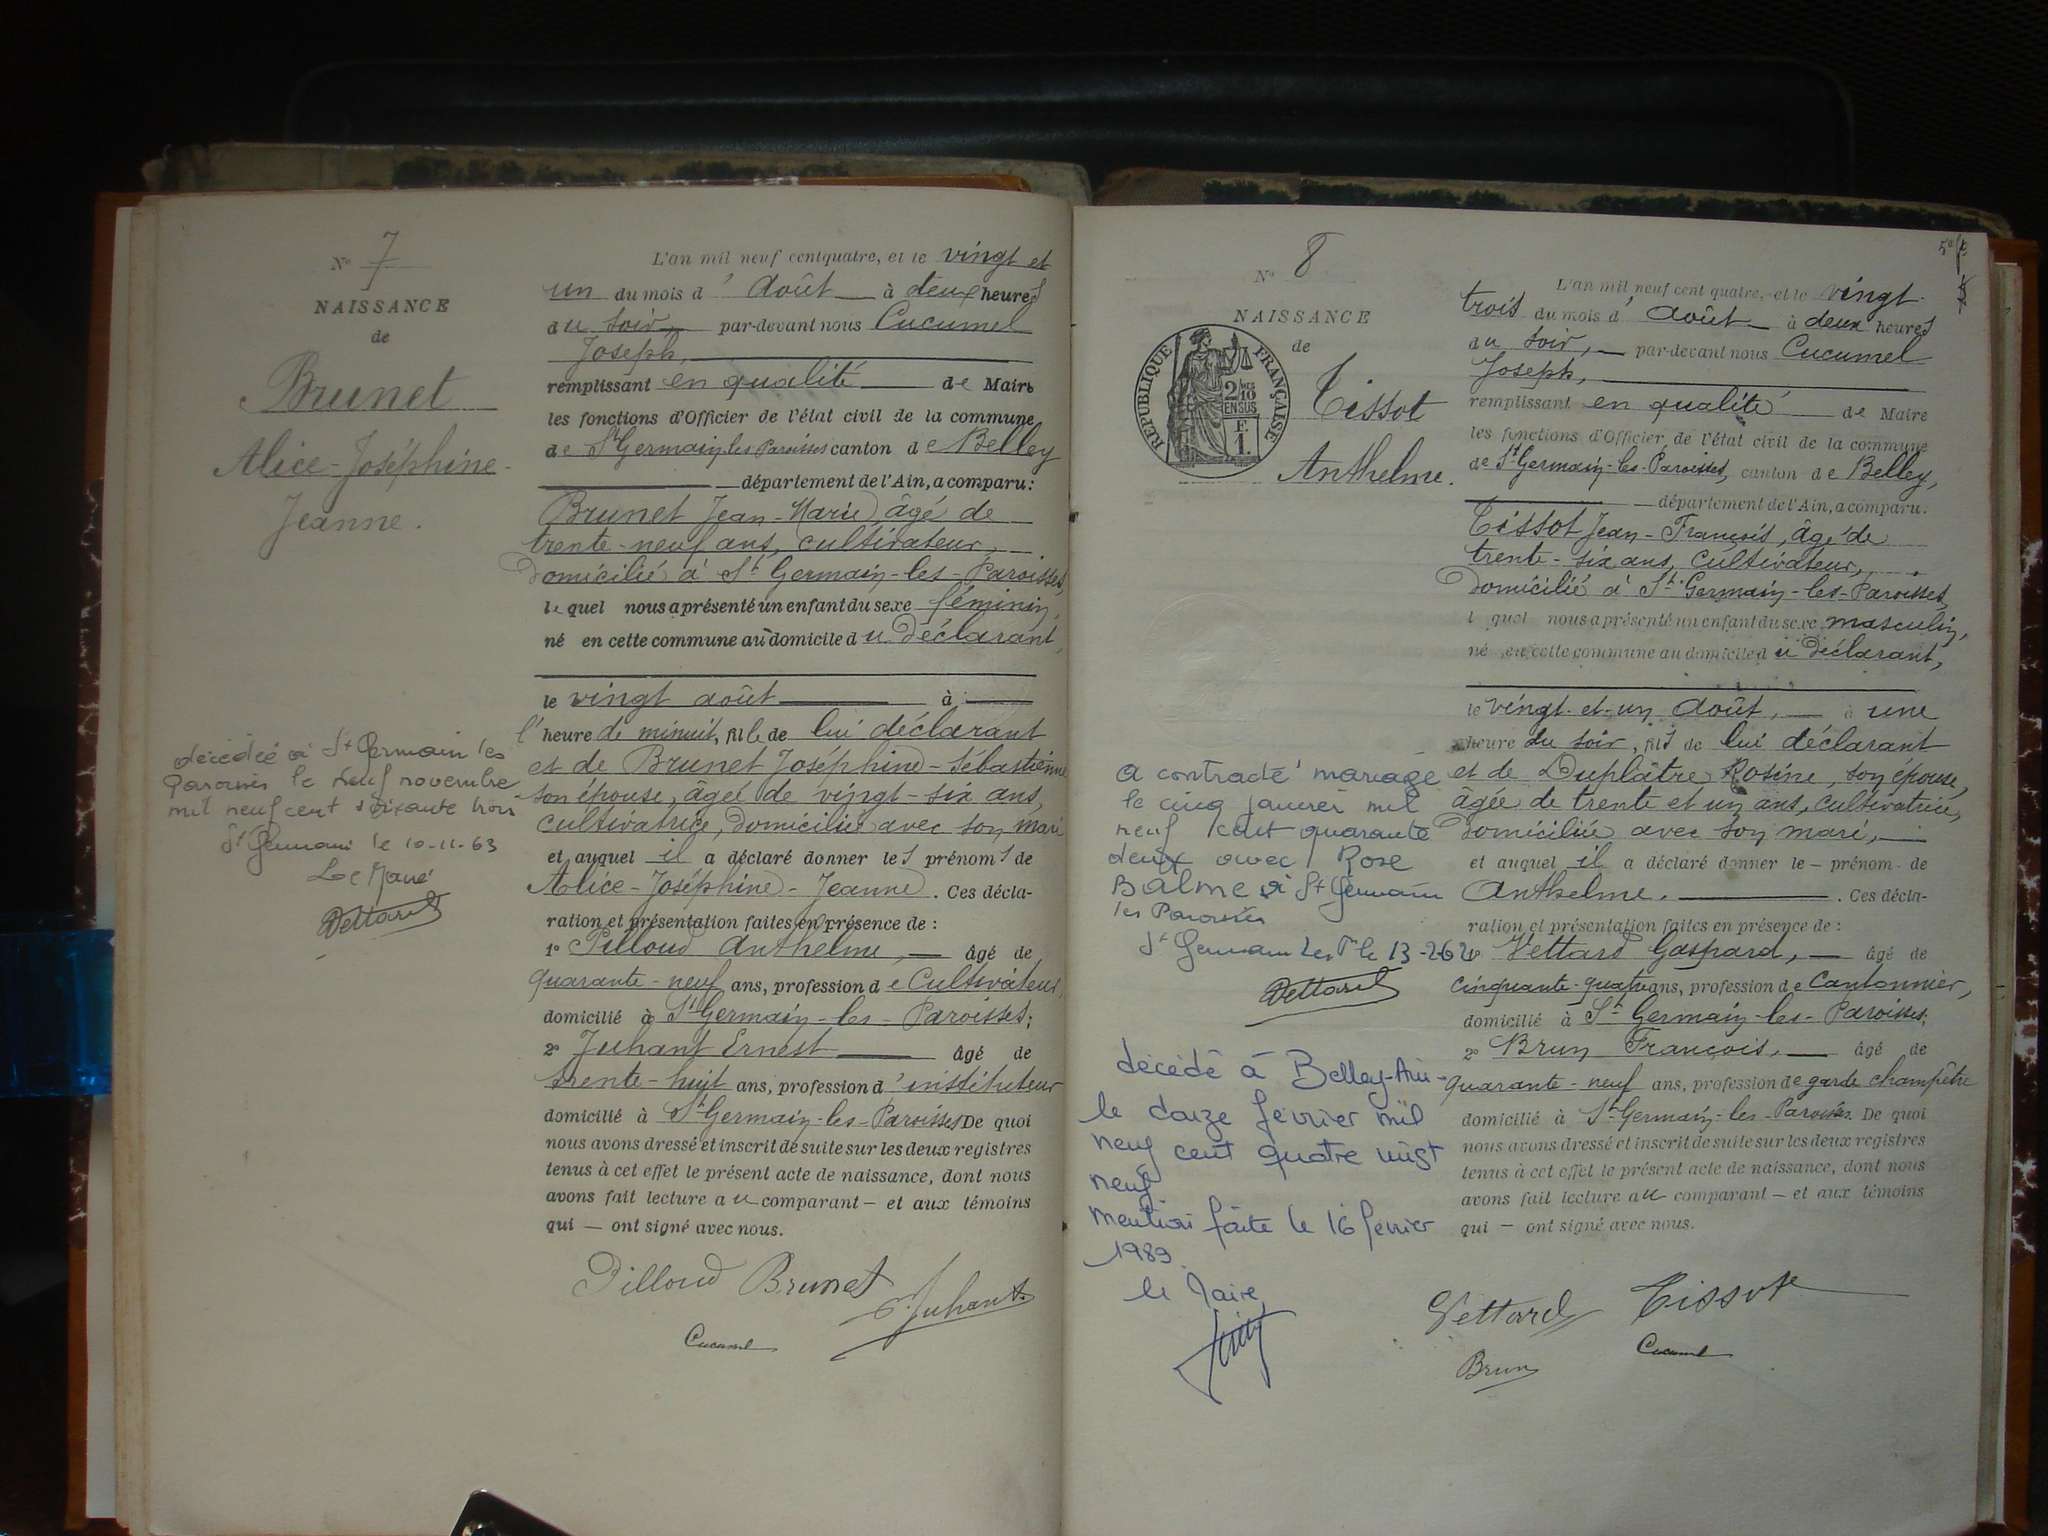 N° 7
NAISSANCE
de
Brunet
Alice-Joséphine-
Jeanne.
décédée à St Germain les
Paroisses le neuf novembre
mil neuf cent soixante trois
St Germain le 10-11-63
Le Maire
Vettard
L'an mil neuf cent quatre, et le vingt et
un du mois d'août à deux heures
du soir, par-devant nous Cucumel
Joseph,
remplissant en qualité de Maire
les fonctions d'Officier de l'état civil de la commune
de St Germain-les-Paroisses canton de Belley
département de l'Ain, a comparu:
Brunet Jean-Marie âgé de
trente-neuf ans, cultivateur,
domicilié à St Germain-les-Paroisses,
lequel nous a présenté un enfant du sexe féminin,
né en cette commune au domicile du déclarant,
le vingt août à
l'heure de minuit, fille de lui déclarant
et de Brunet Joséphine-Sébastienne
son épouse, âgée de vingt-six ans,
cultivatrice, domiciliée avec son mari
et auquel il a déclaré donner les prénoms de
Alice-Joséphine-Jeanne. Ces décla-
ration et présentation faites en présence de:
1° Pilloud Anthelme, âgé de
quarante-neuf ans, profession de Cultivateur,
domicilié à St Germain-les-Paroisses;
2° Juhant Ernest âgé de
trente-huit ans, profession d'instituteur
domicilié à St Germain-les-Paroisses De quoi
nous avons dressé et inscrit de suite sur les deux registres
tenus à cet effet le présent acte de naissance, dont nous
avons fait lecture au comparant — et aux témoins
qui — ont signé avec nous.
Pilloud Brunet
E. Juhant
Cucumel
N° 8
NAISSANCE
de
RÉPUBLIQUE FRANÇAISE
2/10
EN SUS
F.
1.
Tissot
Anthelme.
a contracté mariage
le cinq janvier mil
neuf cent quarante
deux avec Rose
Balme à St Germain
les Paroisses
St Germain Les P le 13-2-62
Vettard
décédé à Belley-Ain-
le douze février mil
neuf cent quatre vingt
neuf
mention faite le 16 février
1989.
le Maire
L'an mil neuf cent quatre, et le vingt-
trois du mois d'août à deux heures
du soir, par-devant nous Cucumel
Joseph,
remplissant en qualité de Maire
les fonctions d'Officier de l'état civil de la commune
de St Germain-les-Paroisses, canton de Belley,
département de l'Ain, a comparu:
Tissot Jean-François, âgé de
trente-six ans, cultivateur,
domicilié à St Germain-les-Paroisses,
l quel nous a présenté un enfant du sexe masculin,
né en cette commune au domicile du déclarant,
le vingt-et-un août, à une
heure du soir, fils de lui déclarant
et de Duplâtre Rosine, son épouse,
âgée de trente et un ans, cultivatrice,
domiciliée avec son mari,
et auquel il a déclaré donner le — prénom de
Anthelme. Ces décla-
ration et présentation faites en présence de:
1° Vettard Gaspard, âgé de
cinquante-quatre ans, profession de Cantonnier,
domicilié à St Germain-les-Paroisses;
2° Brun François, âgé de
quarante-neuf ans, profession de garde champêtre
domicilié à St Germain-les-Paroisses. De quoi
nous avons dressé et inscrit de suite sur les deux registres
tenus à cet effet le présent acte de naissance, dont nous
avons fait lecture au comparant — et aux témoins
qui — ont signé avec nous.
Vettard Tissot
Cucumel
Brun